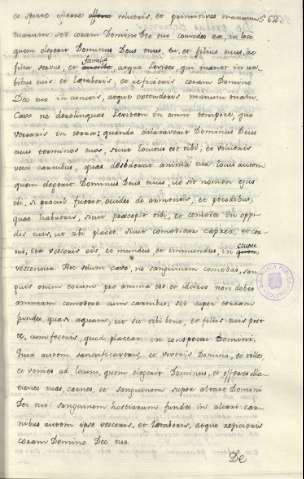 ex sponte offerre volueris, et primitias manuum
tuarum: sed coram Domino Deo tuo comedes ea, in loco
quem elegerit Dominus Deus tuus, tu, et filius tuus, et
filia, servus, et famula, atque Levites, qui manet in ur-
bibus tuis: et laetaberis, et reficieris coram Domino
Deo tuo in cunctis, ad quae extenderis manum tuam.
Cave ne derelinquas Levitem in omni tempore, quo
versaris in terra: quando dilataverit Dominus Deus
tuus terminos tuos, sicut locutus est tibi, et volueris
vesci carnibus, quas desiderat anima tua: locus autem
quem elegerit Dominus Deus tuus, ut sit nomen ejus
ibi, si procul fuerit, occides de armentis, et pecoribus,
quae habueris, sicut praecepi tibi, et comedes in oppi-
dis tuis, ut tibi placet. Sicut comeditur caprea, et cer-
vus, ita vesceris eis, et mundus, et immundus, in commune
vescentur. Hoc solum cave, ne sanguinem comedas, san-
guis enim eorum pro anima est: et idcirco non debes
animam comedere cum carnibus, sed super terram
fundes, quasi aquam, ut sit tibi bene, et filiis tuis post
te, cum feceris, quod placeat in conspectu Domini;
Quae autem sanctificaveris, et voveris Domino, tolles,
et venies ad locum, quem elegerit Dominus, et offeres obla-
tiones tuas, carnes, et sanguinem super altare Domini
Dei tui: sanguinem hostiarum fundes in altari: car-
nibus autem ipse vesceris,
coram Domino Deo tuo.
De